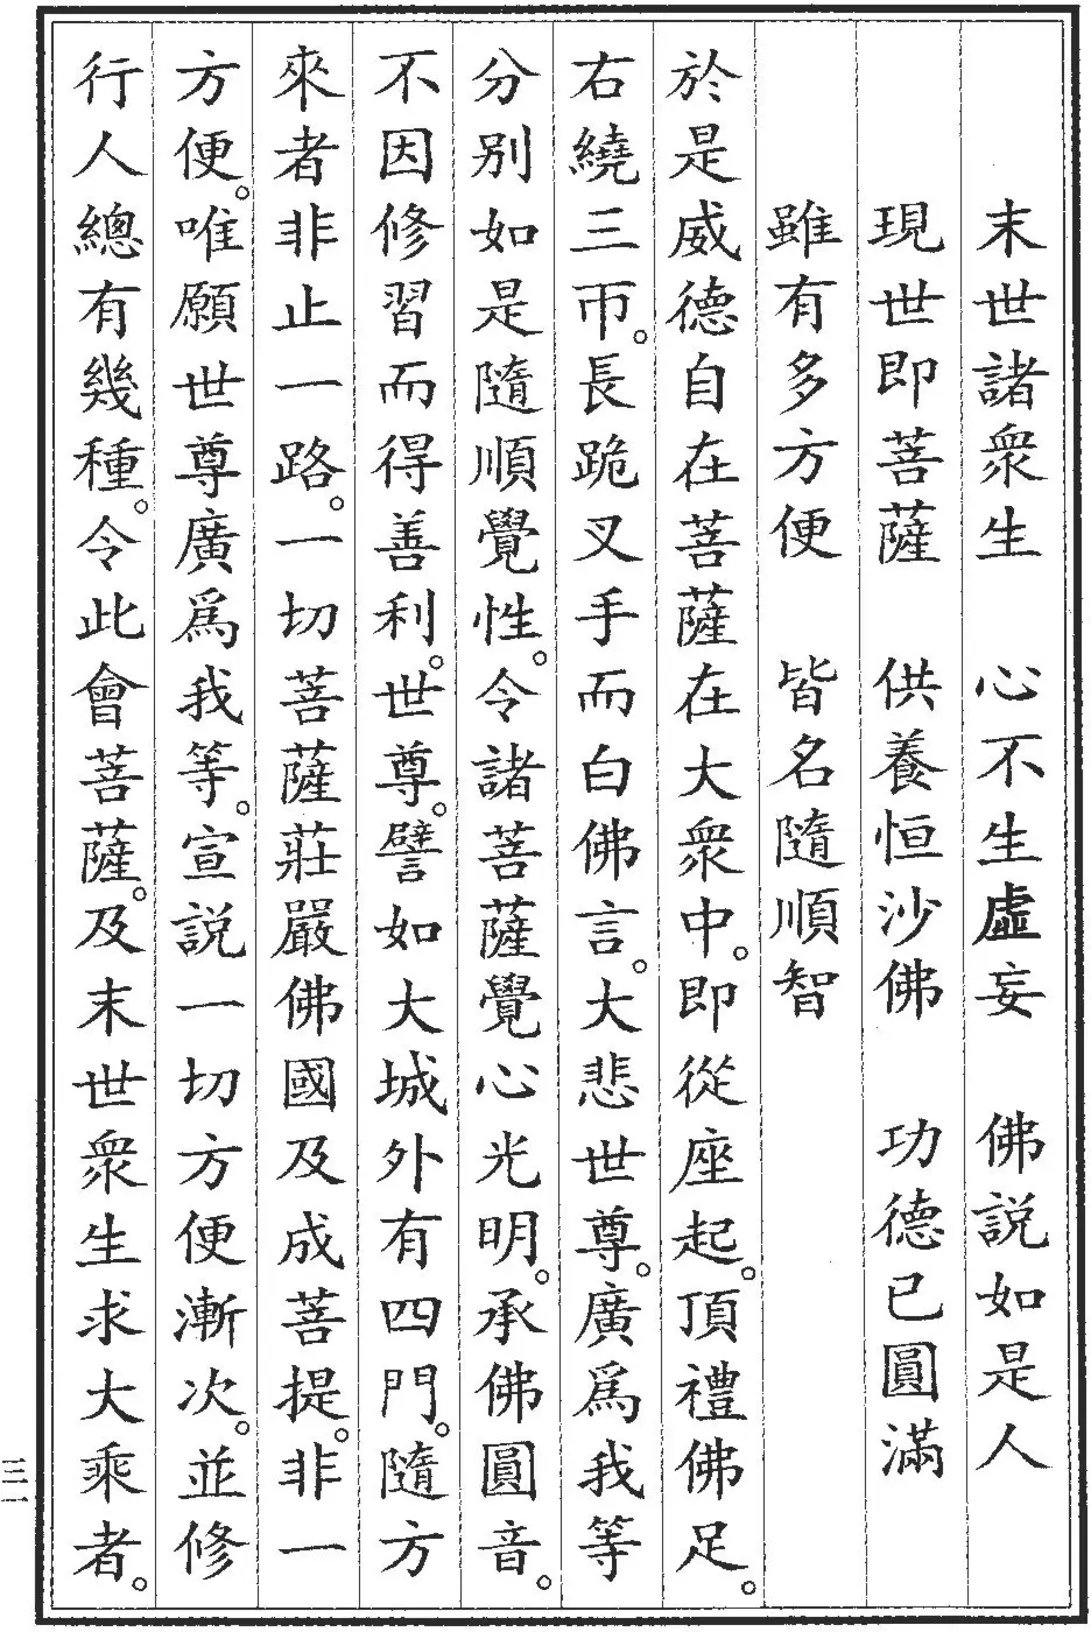 末世諸衆生　心不生虛妄　佛說如是人
現世即菩薩　供養恒沙佛　功德已圓滿
雖有多方便　皆名隨順智
於是威德自在菩薩在大衆中。即從座起。頂禮佛足。
右繞三帀。長跪叉手而白佛言。大悲世尊。廣爲我等
分別如是隨順覺性。令諸菩薩覺心光明。承佛圓音。
不因修習而得善利。世尊。譬如大城外有四門。隨方
來者非止一路。一切菩薩莊嚴佛國及成菩提。非一
方便。唯願世尊廣爲我等。宣說一切方便漸次。並修
行人總有幾種。令此會菩薩。及末世衆生求大乘者。
三一